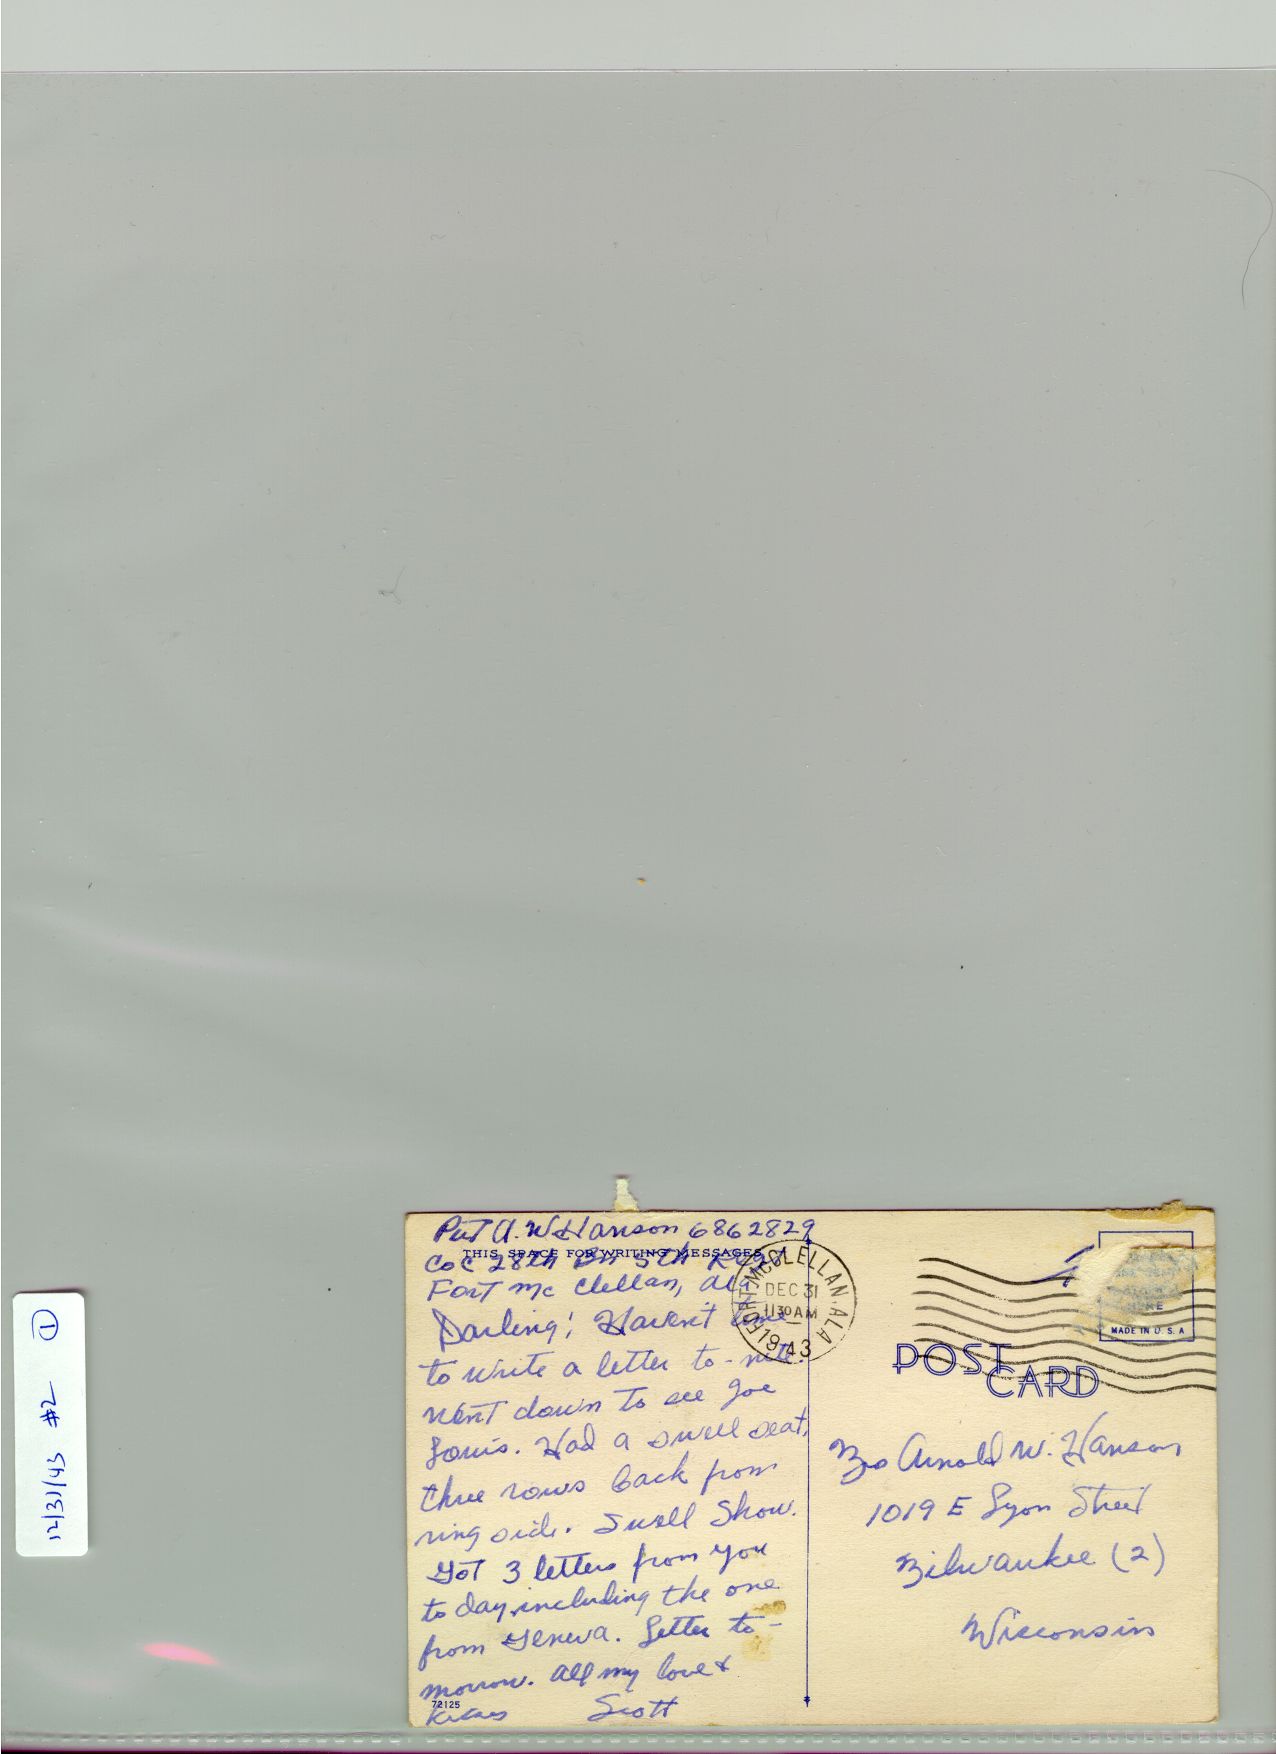 Pvt A. W Hanson 6862829
THIS SPACE FOR WRITING MESSAGES
Co C 28th Bn 5th Regt
Fort Mc Clellan, Ala
Darling! Haven't time
to write a letter to-nite.
Went down to see Joe
Louis. Had a swell seat,
three rows back from
ring side. Swell Show.
Got 3 letters from you
to day, including the one
from Geneva. Letter to-
morrow. All my love &
72125
Kisses Scott
FORT MCCLELLAN, ALA
DEC 31
11 30 AM
1943
HERE
MADE IN U.S.A
POST
CARD
Mrs Arnold W. Hanson
1019 E Lyon Street
Milwaukee (2)
Wisconsin
12/31/43 #2 1